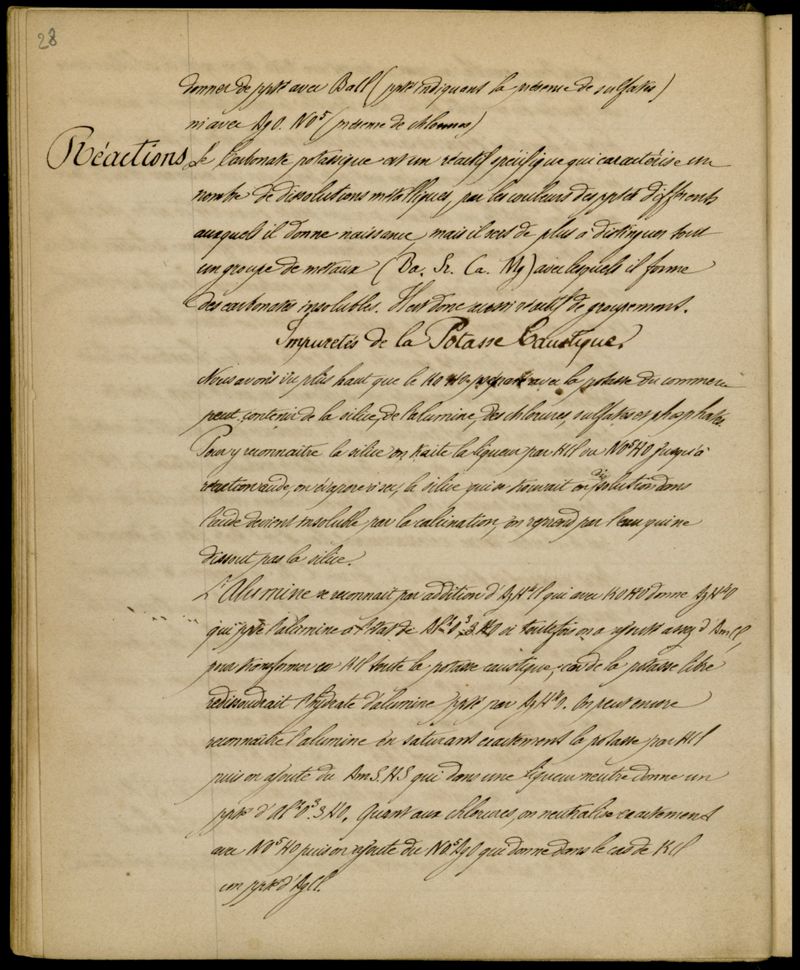 28
donner de ppté avec BaCl (ppté indiquant la présence de sulfates)
ni avec AgO. NO5 (présence de chlorures)
Réactions
Le Carbonate potassique est un réactif spécifique qui caractérise un
nombre de dissolutions métalliques, par les couleurs des pptés différents
auxquels il donne naissance, mais il sert de plus à distinguer tout
un groupe de métaux (Ba. Sr. Ca. Mg) avec lesquels il forme
des carbonates insolubles. Il est donc aussi réactif de groupement.
Impuretés de la Potasse Caustique.
Nous avons vu plus haut, que le KO HO préparé avec la potasse du commerce
peut contenir de la silice, de l'alumine, des chlorures, sulfates et phosphates.
Pour y reconnaître la silice on traite la liqueur par HCl ou NO5HO jusqu'à
réaction acide, on évapore à sec, la silice qui se trouvait en dissolution dans
l'acide devient insoluble par la calcination, on reprend par l'eau qui ne
dissout pas la silice.
L'Alumine se reconnaît par addition d'AzH4Cl qui avec KOHO donne AzH4O
qui ppte l'alumine à l'état de Al2O3 3HO si toutefois on a ajouté assez d'AmCl,
pour transformer en KCl toute la potasse caustique, car de la potasse libre
redissoudrait l'hydrate d'alumine ppté par AzH4O. On peut encore
reconnaître l'alumine en saturant exactement la potasse par HCl
puis on ajoute du AmS.HS qui dans une liqueur neutre donne un
ppté d'Al2O3.3HO. Quant aux chlorures, on neutralise exactement
avec NO5HO puis on ajoute du NO5AgO qui donne dans le cas de KCl
un ppté d'AgCl.